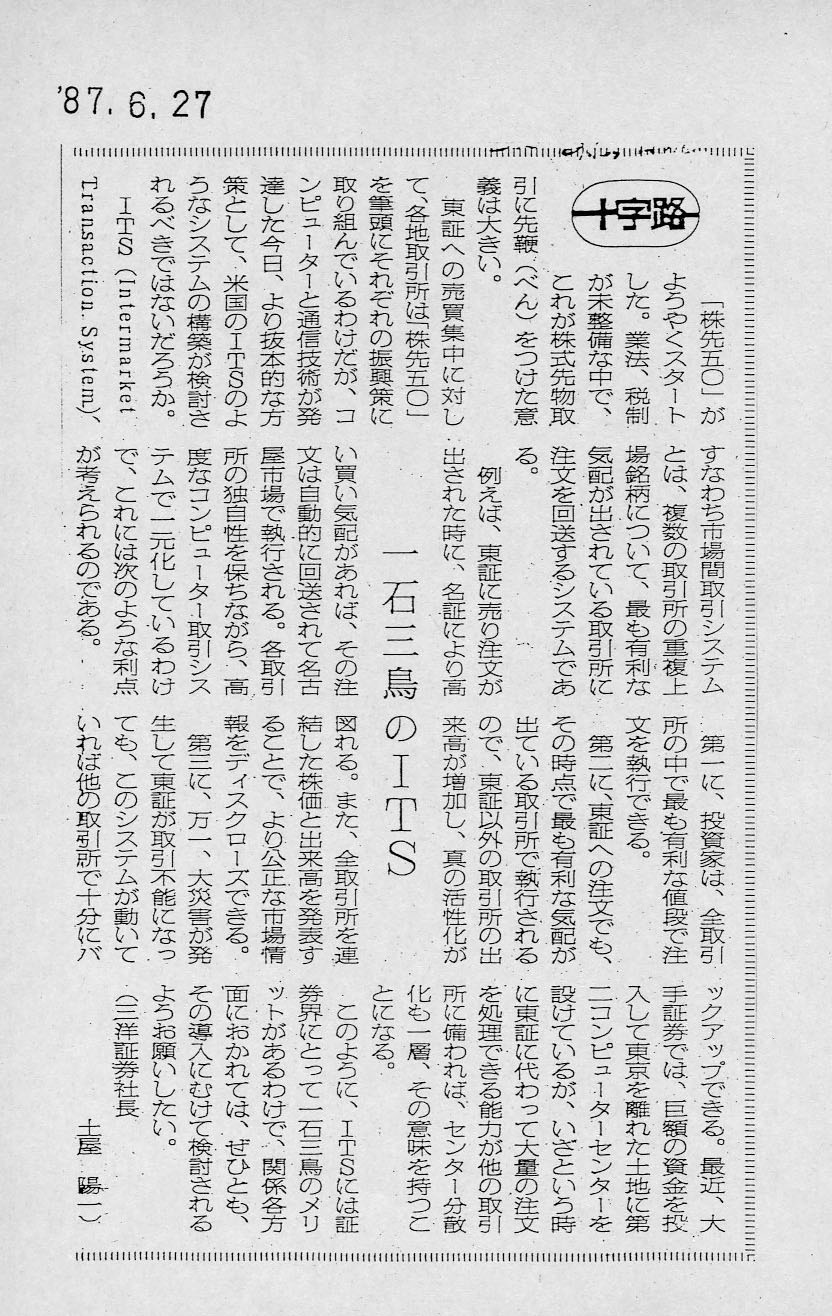 '87.6.27
十字路
「株先五〇」が
ようやくスタート
した。業法、税制
が未整備な中で、
これが株式先物取
引に先鞭(べん)をつけた意
義は大きい。
東証への売買集中に対し
て、各地取引所は「株先五〇」
を筆頭にそれぞれの振興策に
取り組んでいるわけだが、コ
ンピューターと通信技術が発
達した今日、より抜本的な方
策として、米国のITSのよ
うなシステムの構築が検討さ
れるべきではないだろうか。
ITS(Intermarket
Transaction System)、
すなわち市場間取引システム
とは、複数の取引所の重複上
場銘柄について、最も有利な
気配が出されている取引所に
注文を回送するシステムであ
る。
例えば、東証に売り注文が
出された時に、名証により高
一石三鳥のITS
い買い気配があれば、その注
文は自動的に回送されて名古
屋市場で執行される。各取引
所の独自性を保ちながら、高
度なコンピューター取引シス
テムで一元化しているわけ
で、これには次のような利点
が考えられるのである。
第一に、投資家は、全取引
所の中で最も有利な値段で注
文を執行できる。
第二に、東証への注文でも、
その時点で最も有利な気配が
出ている取引所で執行される
ので、東証以外の取引所の出
来高が増加し、真の活性化が
図れる。また、全取引所を連
結した株価と出来高を発表す
ることで、より公正な市場情
報をディスクローズできる。
第三に、万一、大災害が発
生して東証が取引不能になっ
ても、このシステムが動いて
いれば他の取引所で十分にバ
ックアップできる。最近、大
手証券では、巨額の資金を投
入して東京を離れた土地に第
二コンピューターセンターを
設けているが、いざという時
に東証に代わって大量の注文
を処理できる能力が他の取引
所に備われば、センター分散
化も一層、その意味を持つこ
とになる。
このように、ITSには証
券界にとって一石三鳥のメリ
ットがあるわけで、関係各方
面におかれては、ぜひとも、
その導入にむけて検討される
ようお願いしたい。
(三洋証券社長
土屋 陽一)